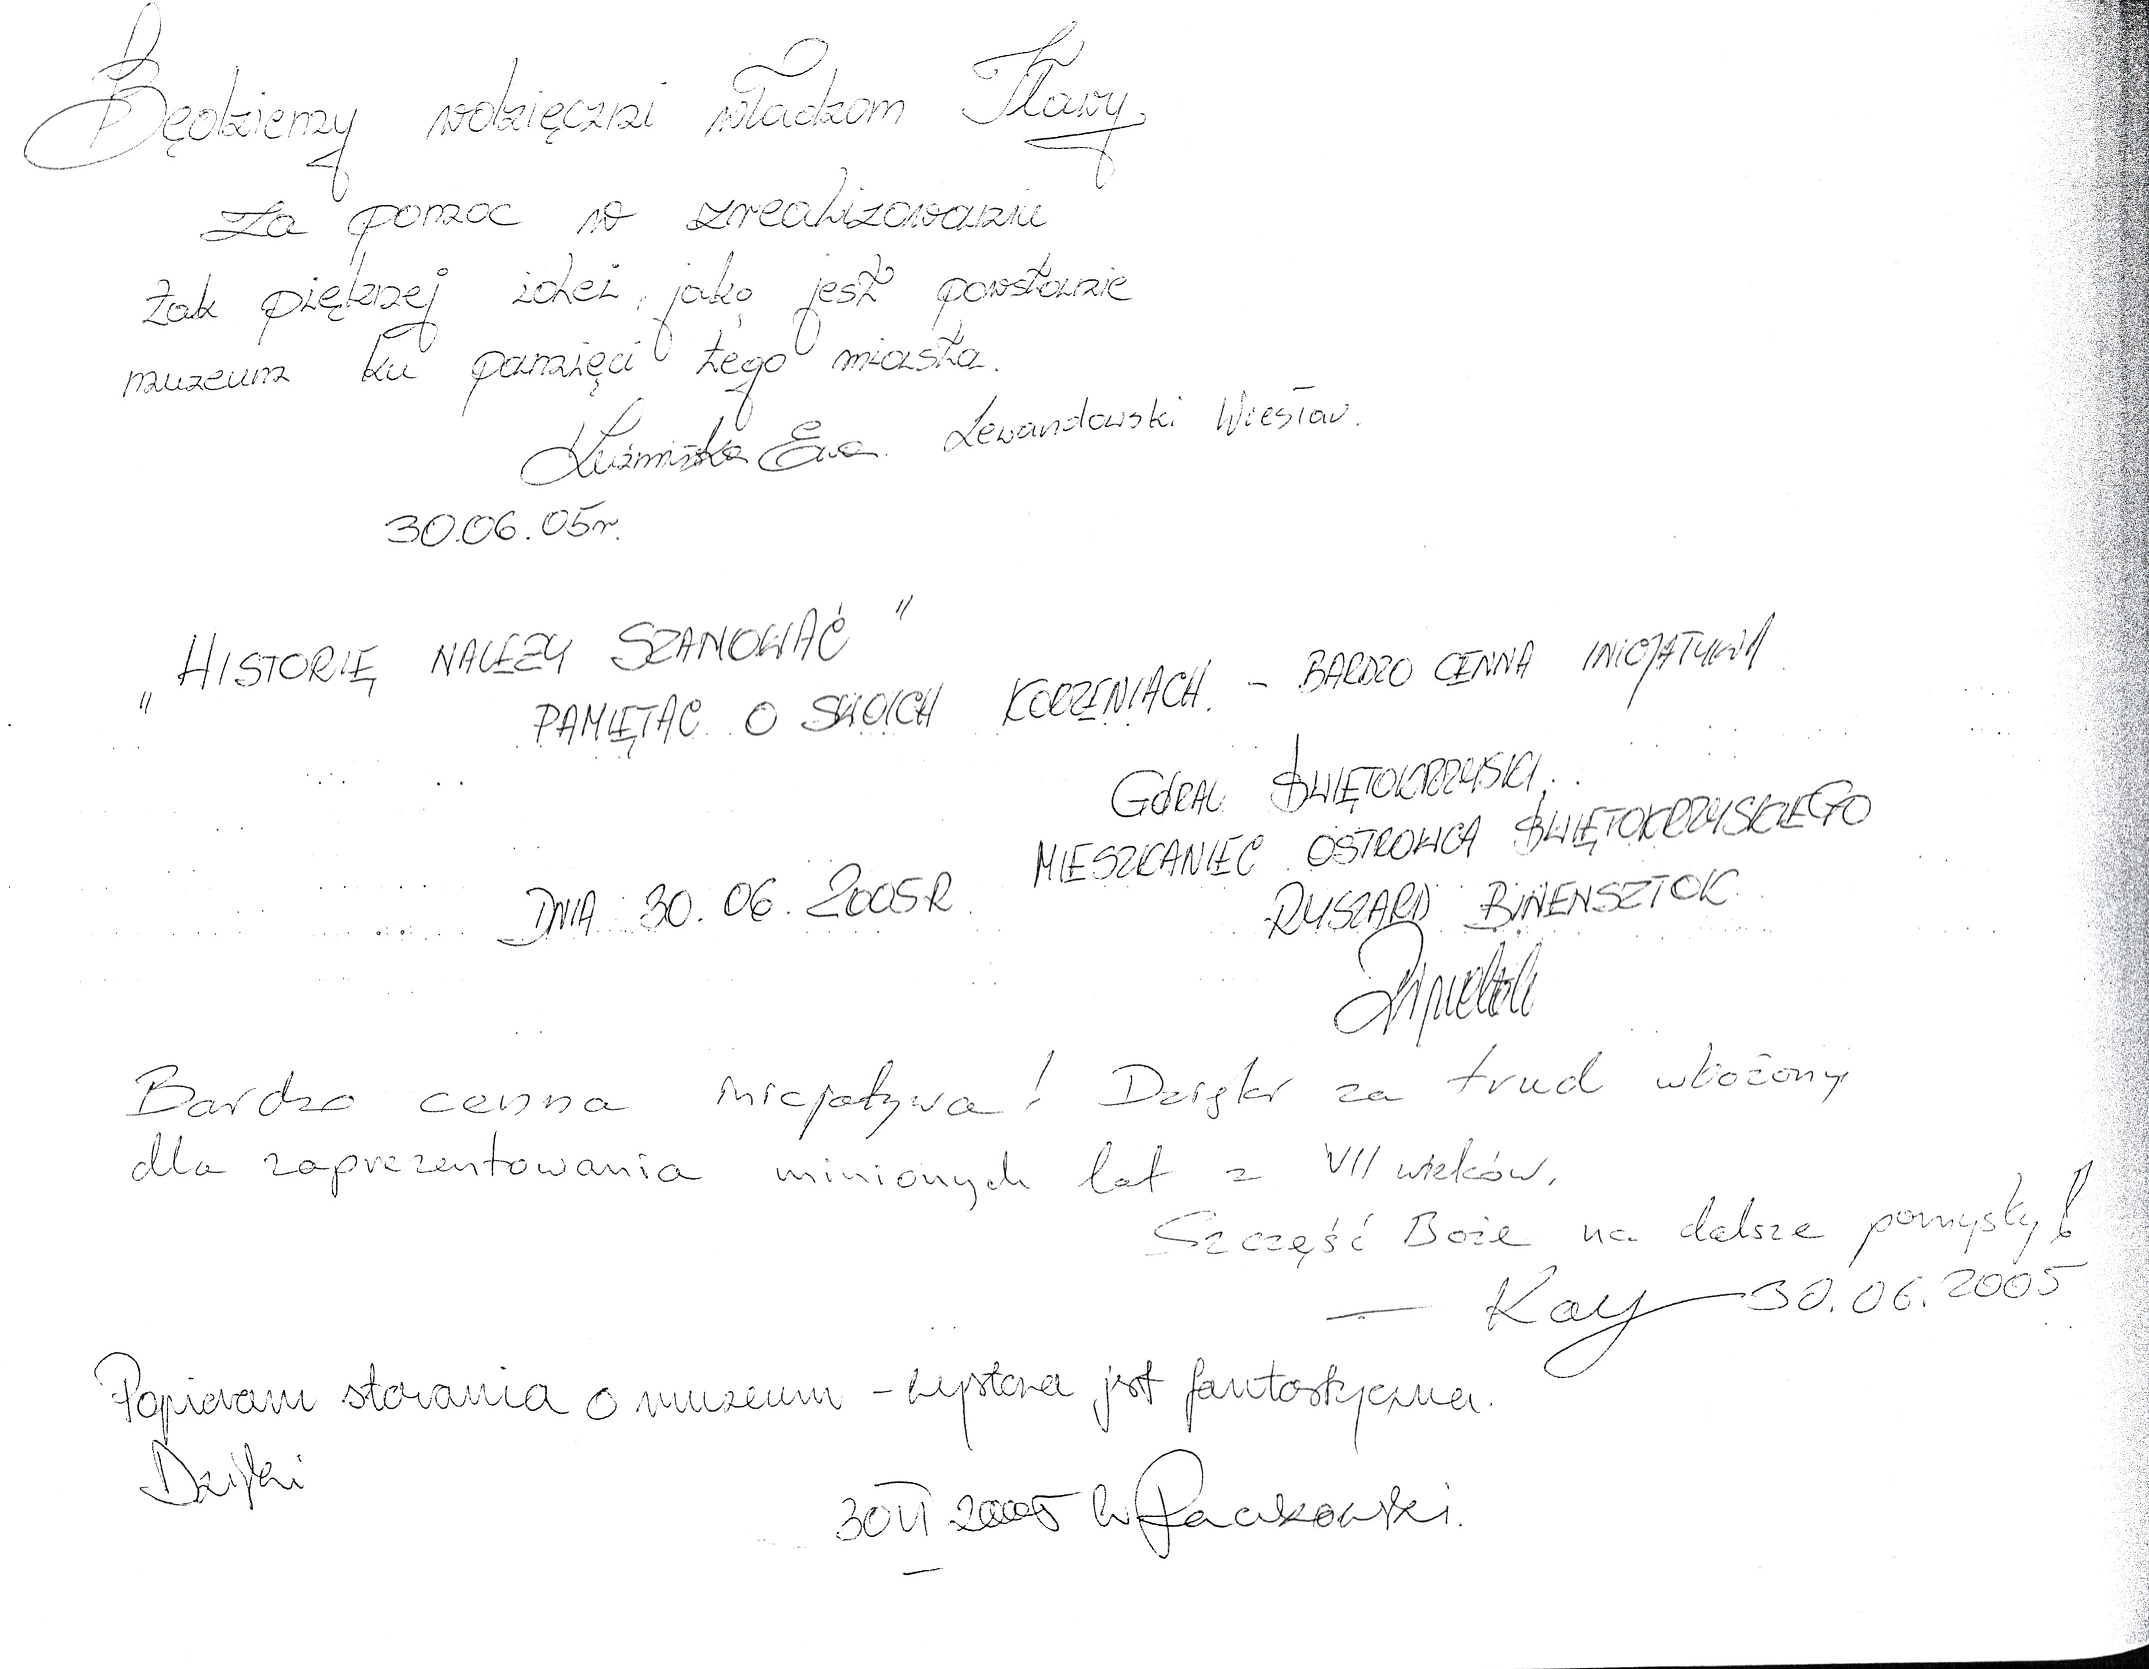 Będziemy wdzięczni władzom Iławy
za pomoc w zrealizowaniu
tak pięknej idei, jaką jest powstanie
muzeum ku pamięci tego miasta.
Ewa. Lewandowski Wiesław.
30.06.05r.
"HISTORIĘ NALEŻY SZANOWAĆ"
PAMIĘTAĆ O SWOICH KORZENIACH. - BARDZO CENNA INICJATYWA
GÓRAL ŚWIĘTOKRZYSKI.
MIESZKANIEC OSTROWCA ŚWIĘTOKRZYSKIEGO
DNIA 30.06.2005R
RYSZARD BINENSZTOK
Bardzo cenna inicjatywa! Dzięki za trud włożony
dla zaprezentowania minionych lat z VII wieków.
Szczęść Boże na dalsze pomysły!
- Kay 30.06.2005
Popieram starania o muzeum - wystawa jest fantastyczna.
Dzięki
30 VI 2005 W Paczkowski.